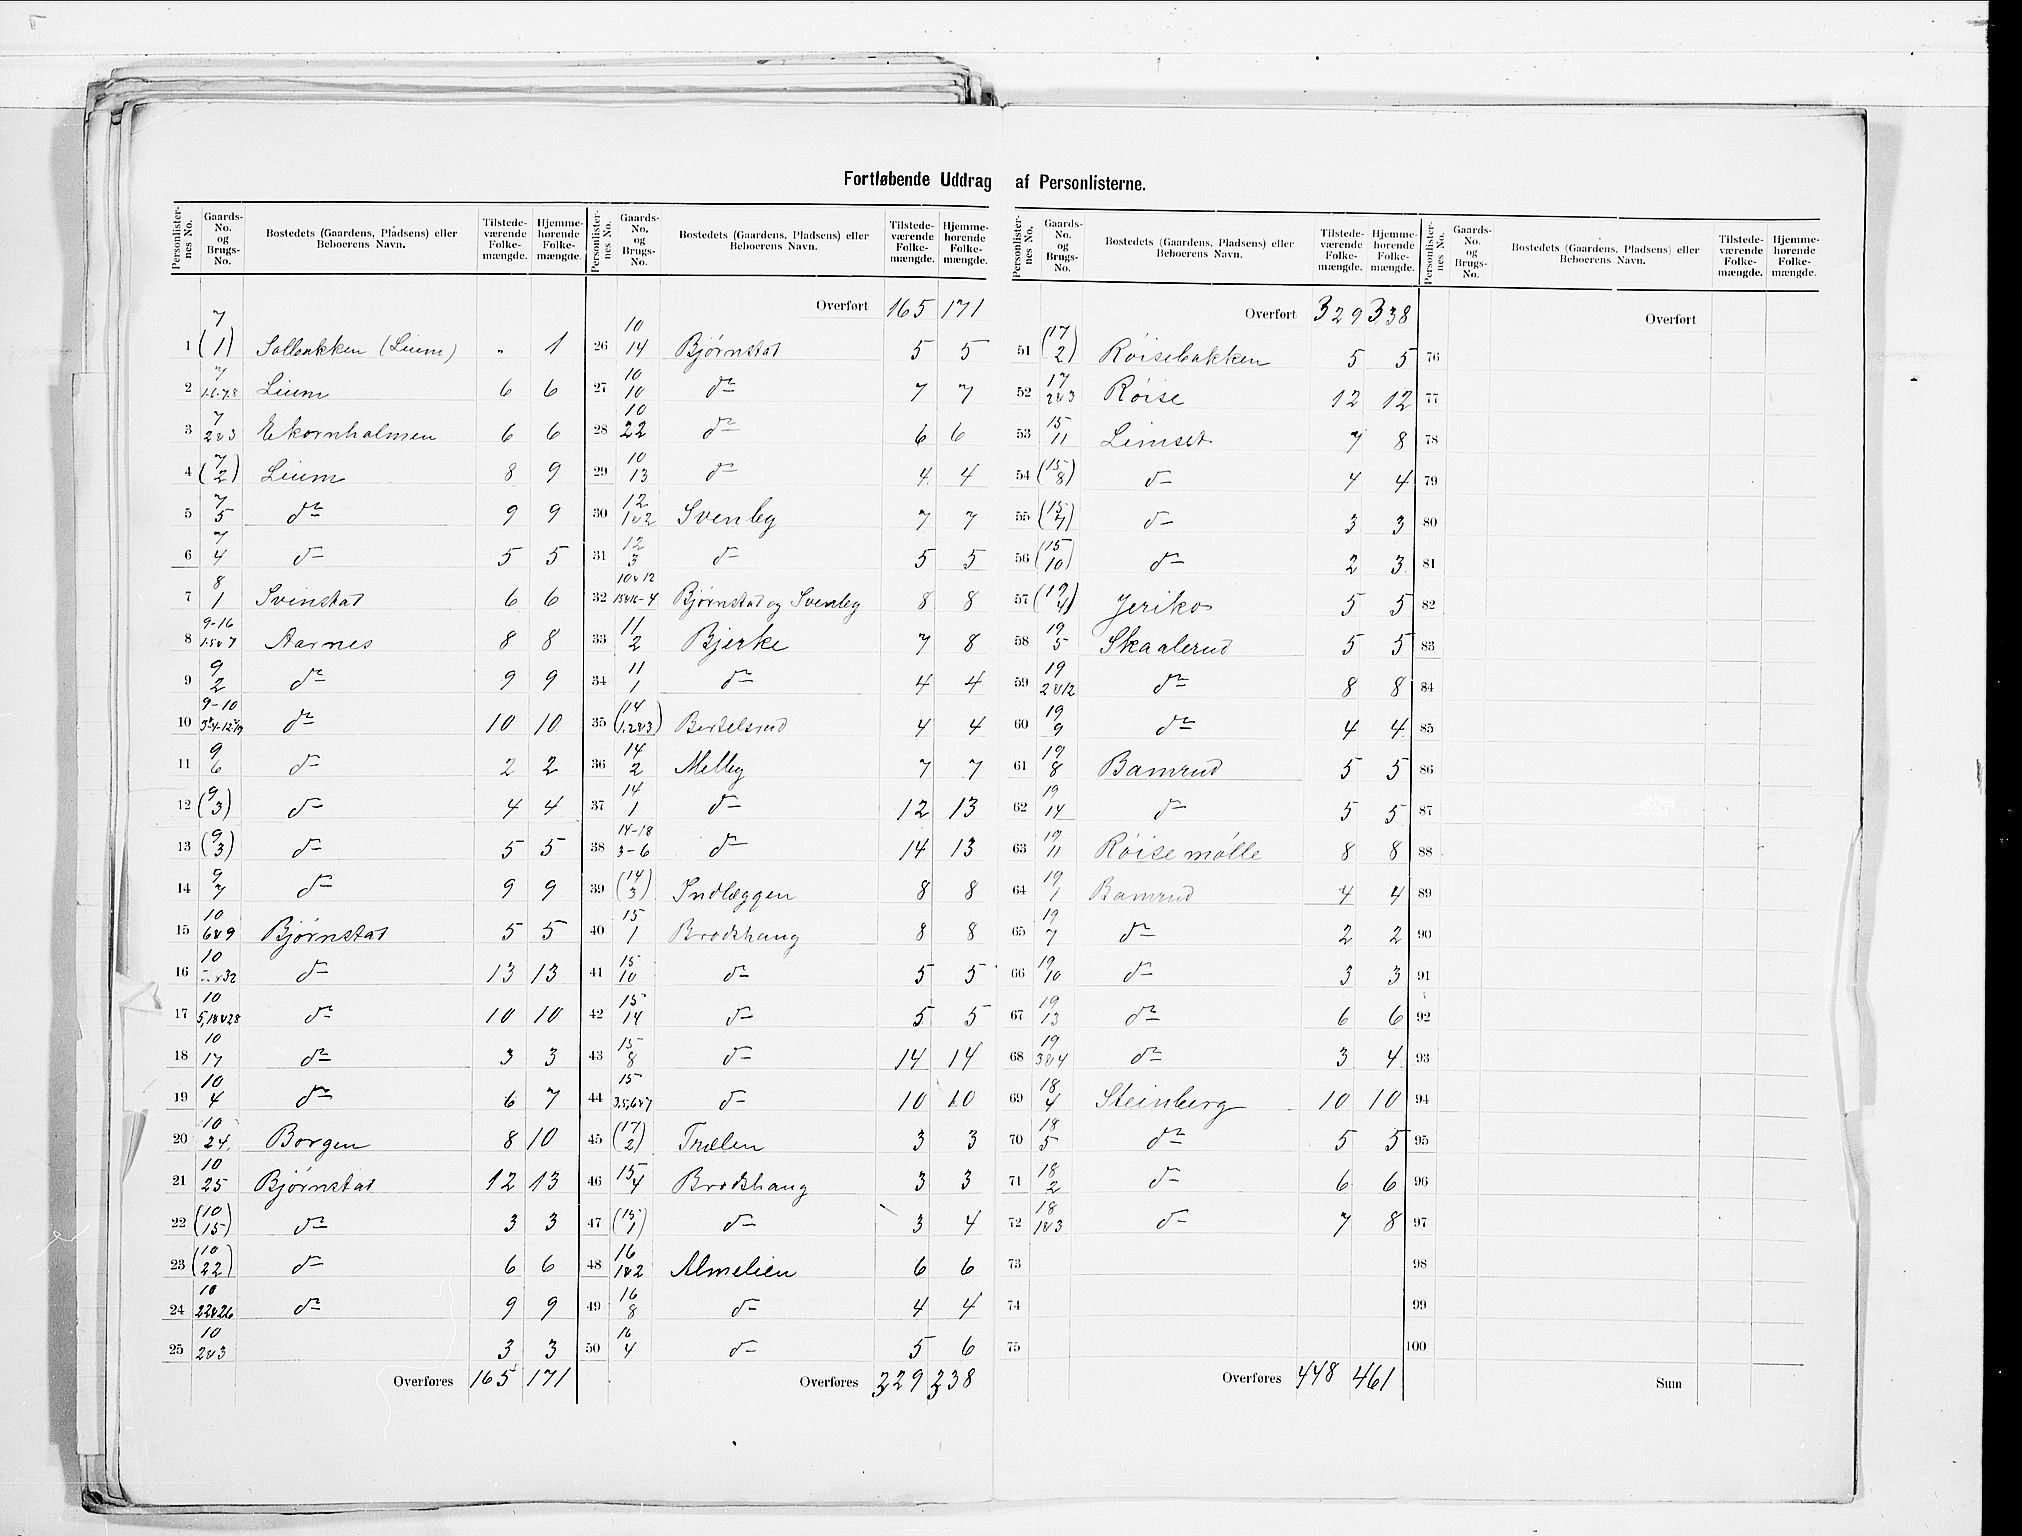 Fortløbende Uddrag af Personlisterne.
Personlisternes No. | Gaards-No. og Brugs-No. | Bostedets (Gaardens, Pladsens) eller Beboerens Navn. | Tilstedeværende Folkemængde. | Hjemmehørende Folkemængde.
1 (7/1) Solbakken (Lium) „ 1
2 7/1.6.7.8 Lium 6 6
3 7/2&3 Ekornholmen 6 6
4 (7/2) Lium 8 9
5 7/5 do 9 9
6 7/4 do 5 5
7 8/1 Svinstad 6 6
8 9-16/1.5&7 Aarnes 8 8
9 9/2 do 9 9
10 9-10/ do 10 10
11 9/6 do 2 2
12 (9/3) do 4 4
13 (9/3) do 5 5
14 9/7 do 9 9
15 10/6&9 Bjørnstad 5 5
16 10/ do 13 13
17 10/5,18&28 do 10 10
18 10/17 do 3 3
19 10/4 do 6 7
20 10/24 Borgen 8 10
21 10/25 Bjørnstad 12 13
22 (10/15) do 3 3
23 (10/22) do 6 6
24 10/22&26 do 9 9
25 10/2&3 3 3
Overføres 165 171
Personlisternes No. | Gaards-No. og Brugs-No. | Bostedets (Gaardens, Pladsens) eller Beboerens Navn. | Tilstedeværende Folkemængde. | Hjemmehørende Folkemængde.
Overført 165 171
26 10/14 Bjørnstad 5 5
27 10/10 do 7 7
28 10/22 do 6 6
29 10/13 do 4 4
30 12/1&2 Svenby 7 7
31 12/3 do 5 5
32 10&12/15&16-4 Bjørnstad og Svenby 8 8
33 11/2 Bjerke 7 8
34 11/1 do 4 4
35 (14/1.2&3) Bertelsrud 4 4
36 14/2 Melby 7 7
37 14/1 do 12 13
38 14-18/3-6 do 14 13
39 (14/3) Indlæggen 8 8
40 15/1 Brodshaug 8 8
41 15/10 do 5 5
42 15/14 do 5 5
43 15/8 do 14 14
44 15/3,5,6&7 do 10 10
45 (17/2) Trælen 3 3
46 15/4 Brodshaug 3 3
47 (15/1) do 3 4
48 16/1&2 Almelien 6 6
49 16/8 do 4 4
50 16/4 do 5 6
Overføres 329 338
Personlisternes No. | Gaards-No. og Brugs-No. | Bostedets (Gaardens, Pladsens) eller Beboerens Navn. | Tilstedeværende Folkemængde. | Hjemmehørende Folkemængde.
Overført 329 338
51 (17/2) Røisebakken 5 5
52 17/2&3 Røise 12 12
53 15/11 Limset 7 8
54 (15/8) do 4 4
55 (15/7) do 3 3
56 (15/10) do 2 3
57 (19/4) Jeriko 5 5
58 19/5 Skaalerud 5 5
59 19/2&12 do 8 8
60 19/9 do 4 4
61 19/8 Bamrud 5 5
62 19/14 do 5 5
63 19/11 Røise mølle 8 8
64 19/1 Bamrud 4 4
65 19/7 do 2 2
66 19/10 do 3 3
67 19/13 do 6 6
68 19/3&4 do 3 4
69 18/4 Steinberg 10 10
70 18/5 do 5 5
71 18/2 do 6 6
72 18/1&3 do 7 8
73
74
75
Overføres 448 461
Personlisternes No. | Gaards-No. og Brugs-No. | Bostedets (Gaardens, Pladsens) eller Beboerens Navn. | Tilstedeværende Folkemængde. | Hjemmehørende Folkemængde.
Overført
76
77
78
79
80
81
82
83
84
85
86
87
88
89
90
91
92
93
94
95
96
97
98
99
100
Sum